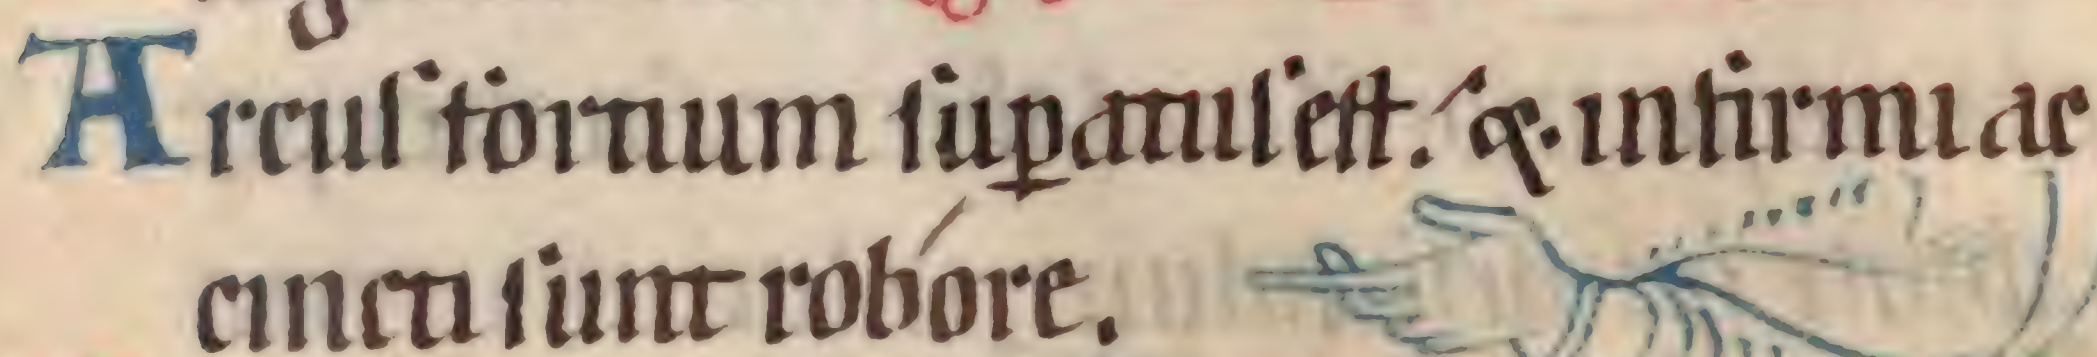 Arcuſ fortium ſuꝑatuſ eſt. ⁊ infirmi ac
cincti ſunt robore.